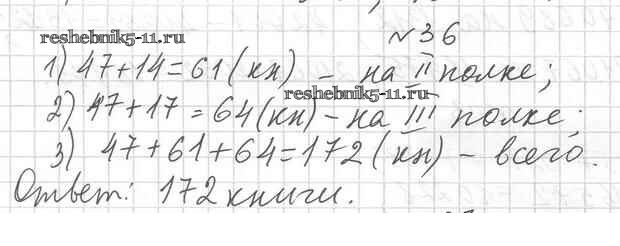 reshebnik5-11.ru
№36
1) 47+14=61(кн) - на II полке;
reshebnik5-11.ru
2) 47+17=64(кн) - на III полке;
3) 47+61+64=172(кн) - всего.
Ответ: 172 книги.